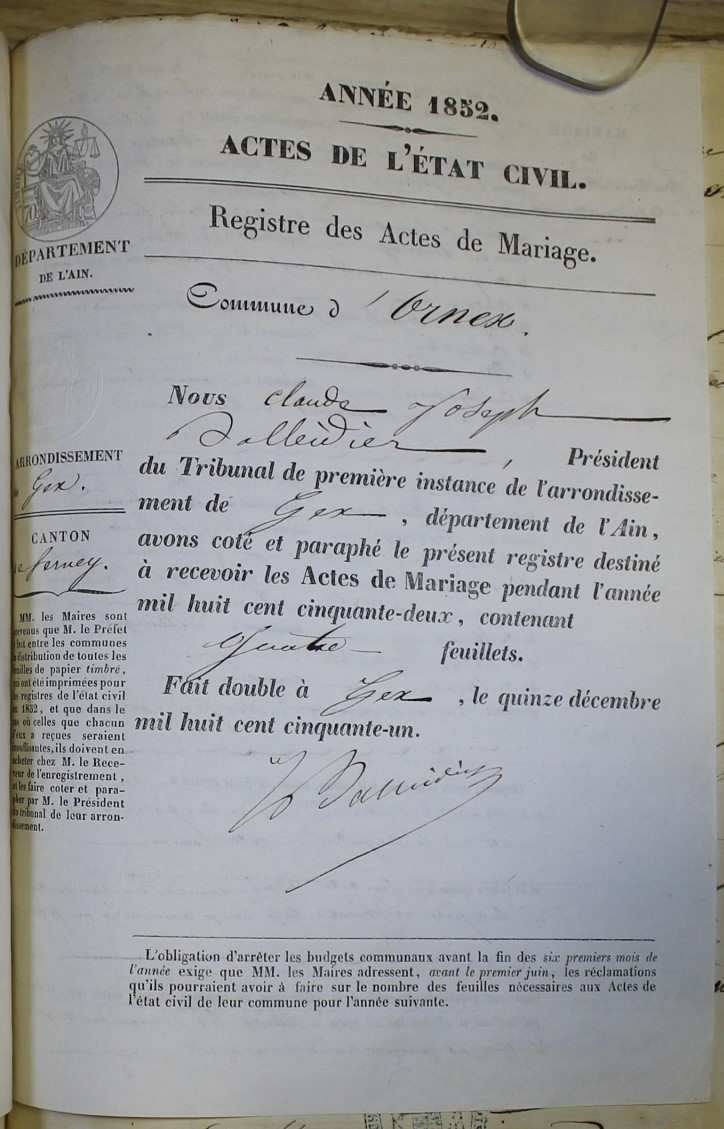 ANNÉE 1852.
ACTES DE L'ÉTAT CIVIL.
Registre des Actes de Mariage.
Commune d'Ornex.
DÉPARTEMENT
DE L'AIN.
ARRONDISSEMENT
de Gex.
CANTON
de ferney.
MM. les Maires sont
prévenus que M. le Préfet
a fait entre les communes
la distribution de toutes les
feuilles de papier timbré,
qui ont été imprimées pour
les registres de l'état civil
de 1852, et que dans le
cas où celles que chacun
d'eux a reçues seraient
insuffisantes, ils doivent en
acheter chez M. le Rece-
veur de l'enregistrement,
et les faire coter et para-
pher par M. le Président
du tribunal de leur arron-
dissement.
Nous Claude Joseph
Balleidier, Président
du Tribunal de première instance de l'arrondisse-
ment de Gex, département de l'Ain,
avons coté et paraphé le présent registre destiné
à recevoir les Actes de Mariage pendant l'année
mil huit cent cinquante-deux, contenant
quatre feuillets.
Fait double à Gex, le quinze décembre
mil huit cent cinquante-un.
Balleidier
L'obligation d'arrêter les budgets communaux avant la fin des six premiers mois de
l'année exige que MM. les Maires adressent, avant le premier juin, les réclamations
qu'ils pourraient avoir à faire sur le nombre des feuilles nécessaires aux Actes de
l'état civil de leur commune pour l'année suivante.